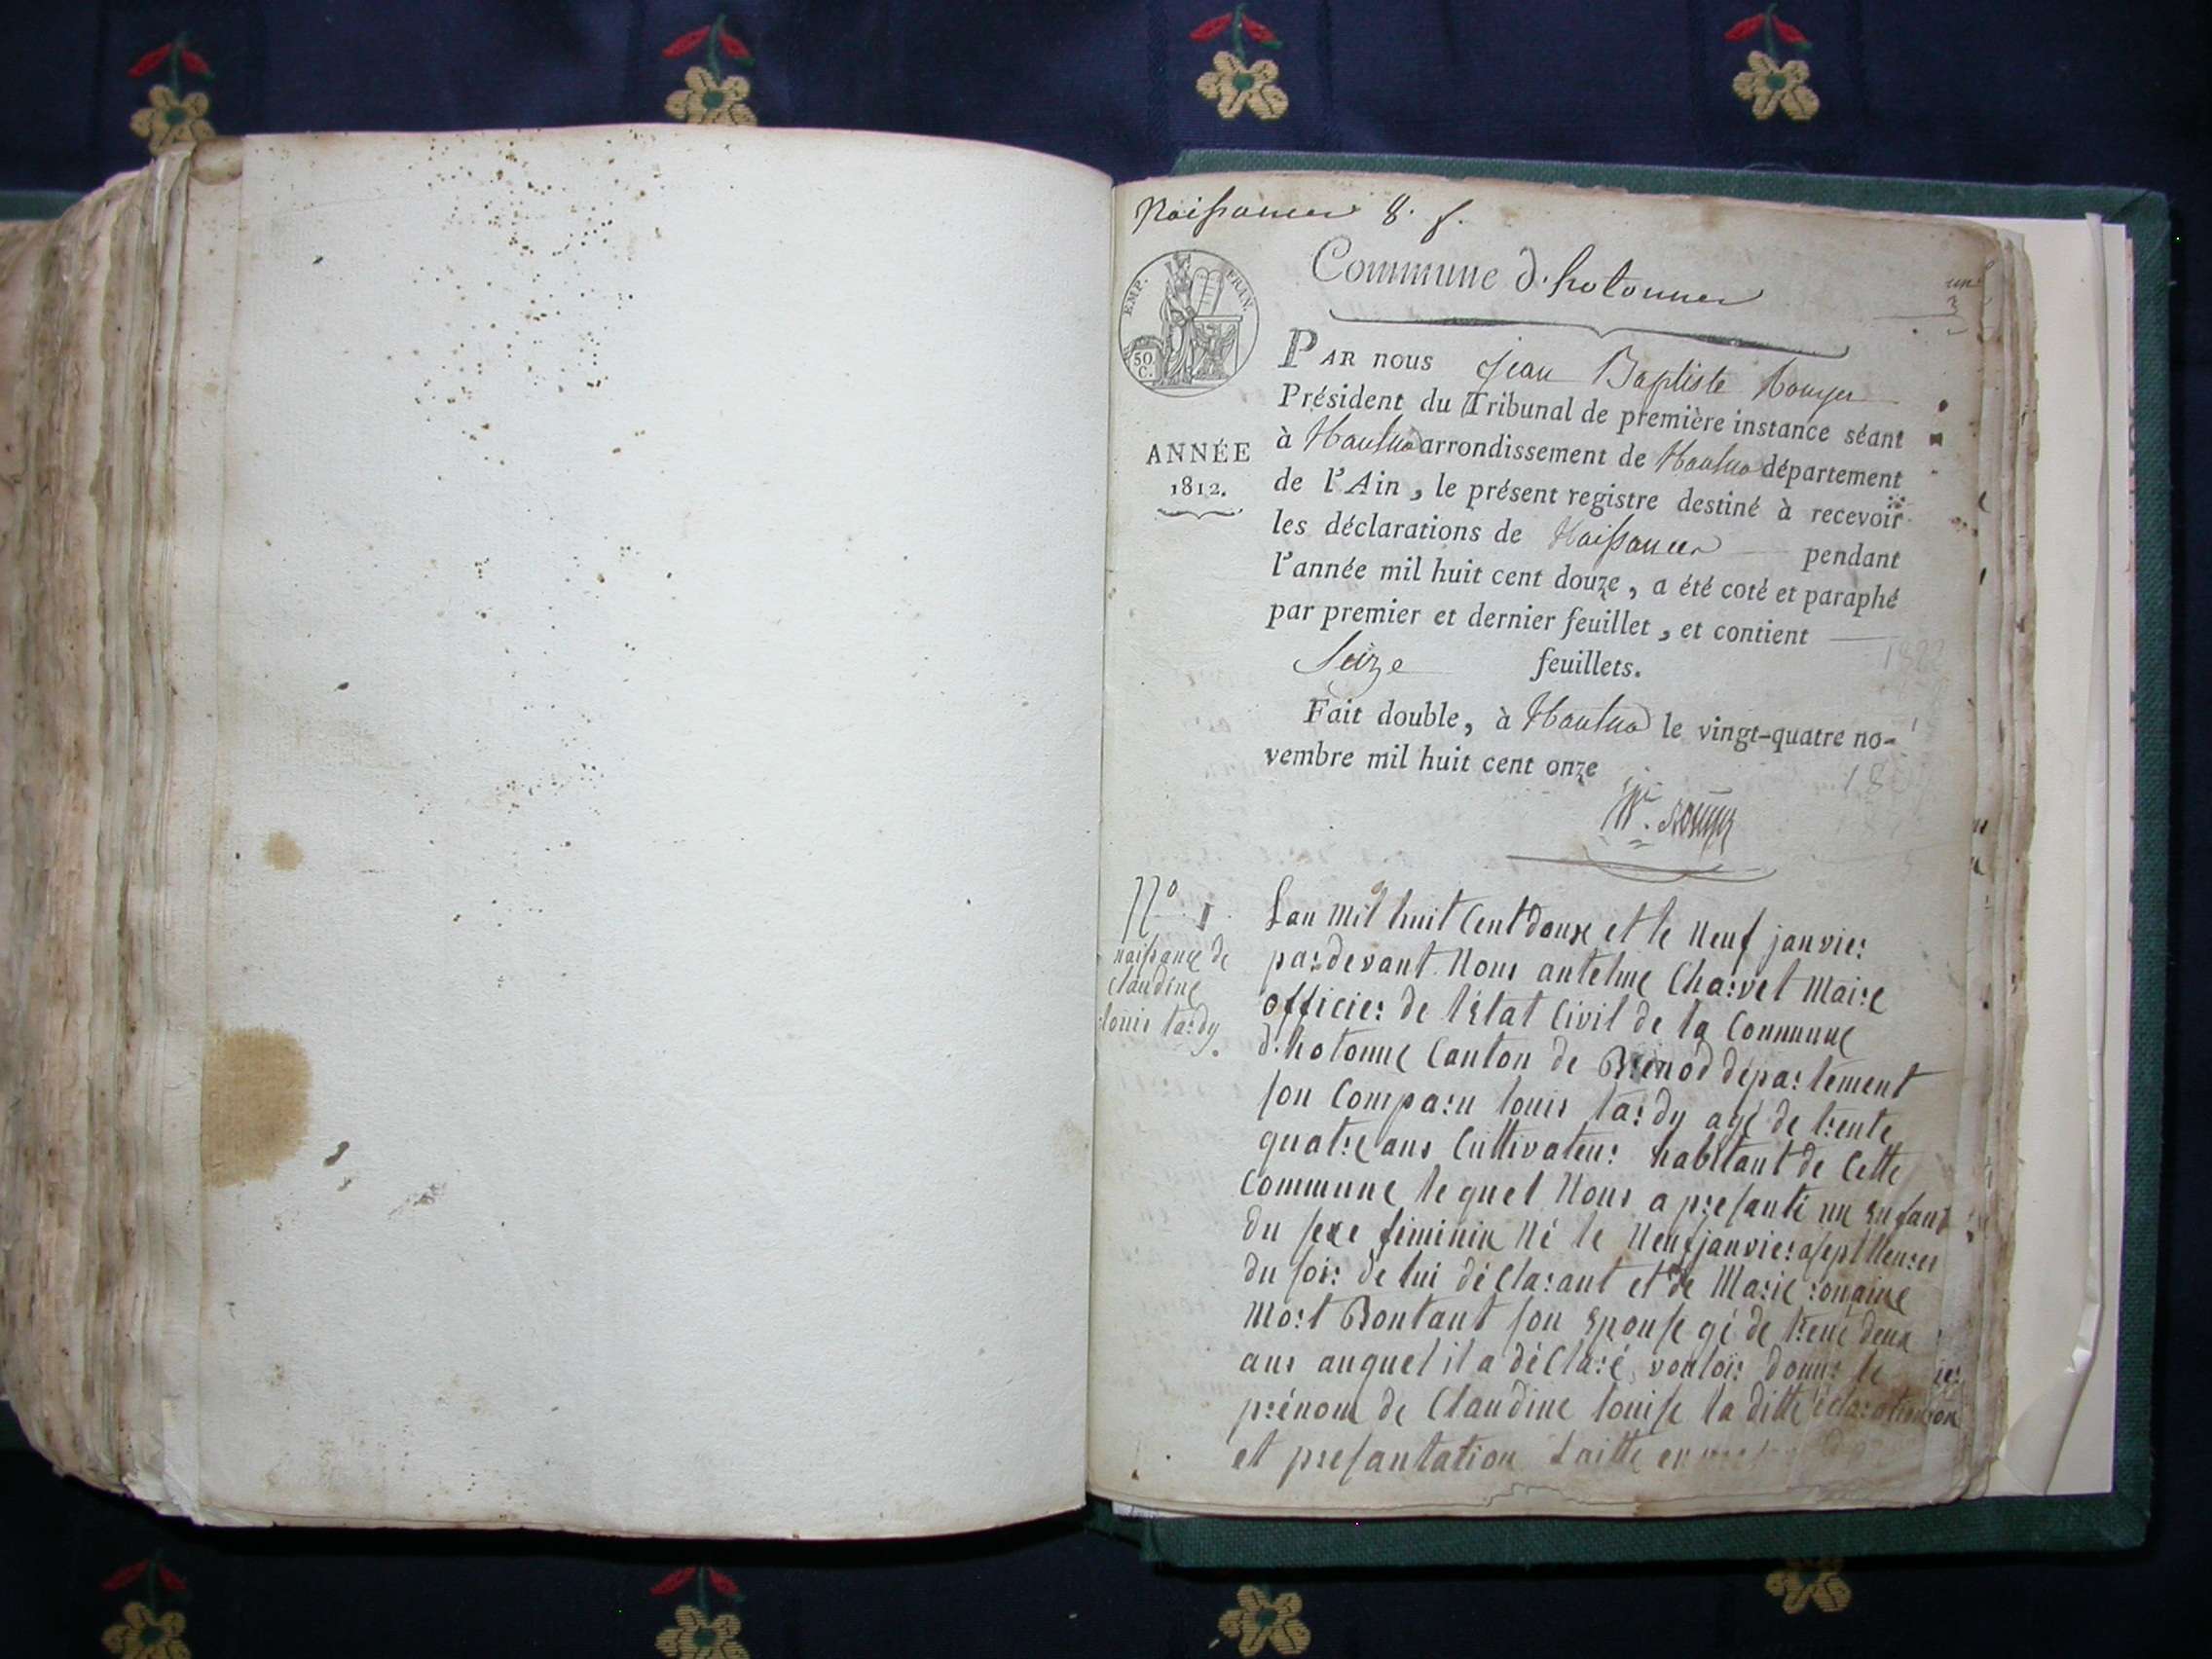 Naissances 8. f.
Commune d'hotonnes
EMP. FRAN.
50 C.
un
PAR nous Jean Baptiste
Président du Tribunal de première instance séant
à Nantua arrondissement de Nantua département
de l'Ain, le présent registre destiné à recevoir
les déclarations de Naissances pendant
l'année mil huit cent douze, a été coté et paraphé
par premier et dernier feuillet, et contient
Seize feuillets.
Fait double, à Nantua le vingt-quatre no-
vembre mil huit cent onze
ANNÉE
1812.
N° 1
naissance de
claudine
louis tardy.
Lan mil huit Cent douze et le Neuf janvier
pardevant Nous antelme Charvet Maire
officier de létat Civil de la Commune
d'hotonne Canton de Brénod département
son Comparu louis tardy agé de trente
quatre ans Cultivateur habitant de Cette
Commune lequel Nous a presanté un enfant
du sexe féminin Né le Neuf janvier a sept Heures
du soir de lui déClarant et de Marie
Mort Bontant son Epouse gé de trente deux
ans auquel il a déClaré vouloir donner le
prénom de Claudine louise la ditte
et presantation faitte en